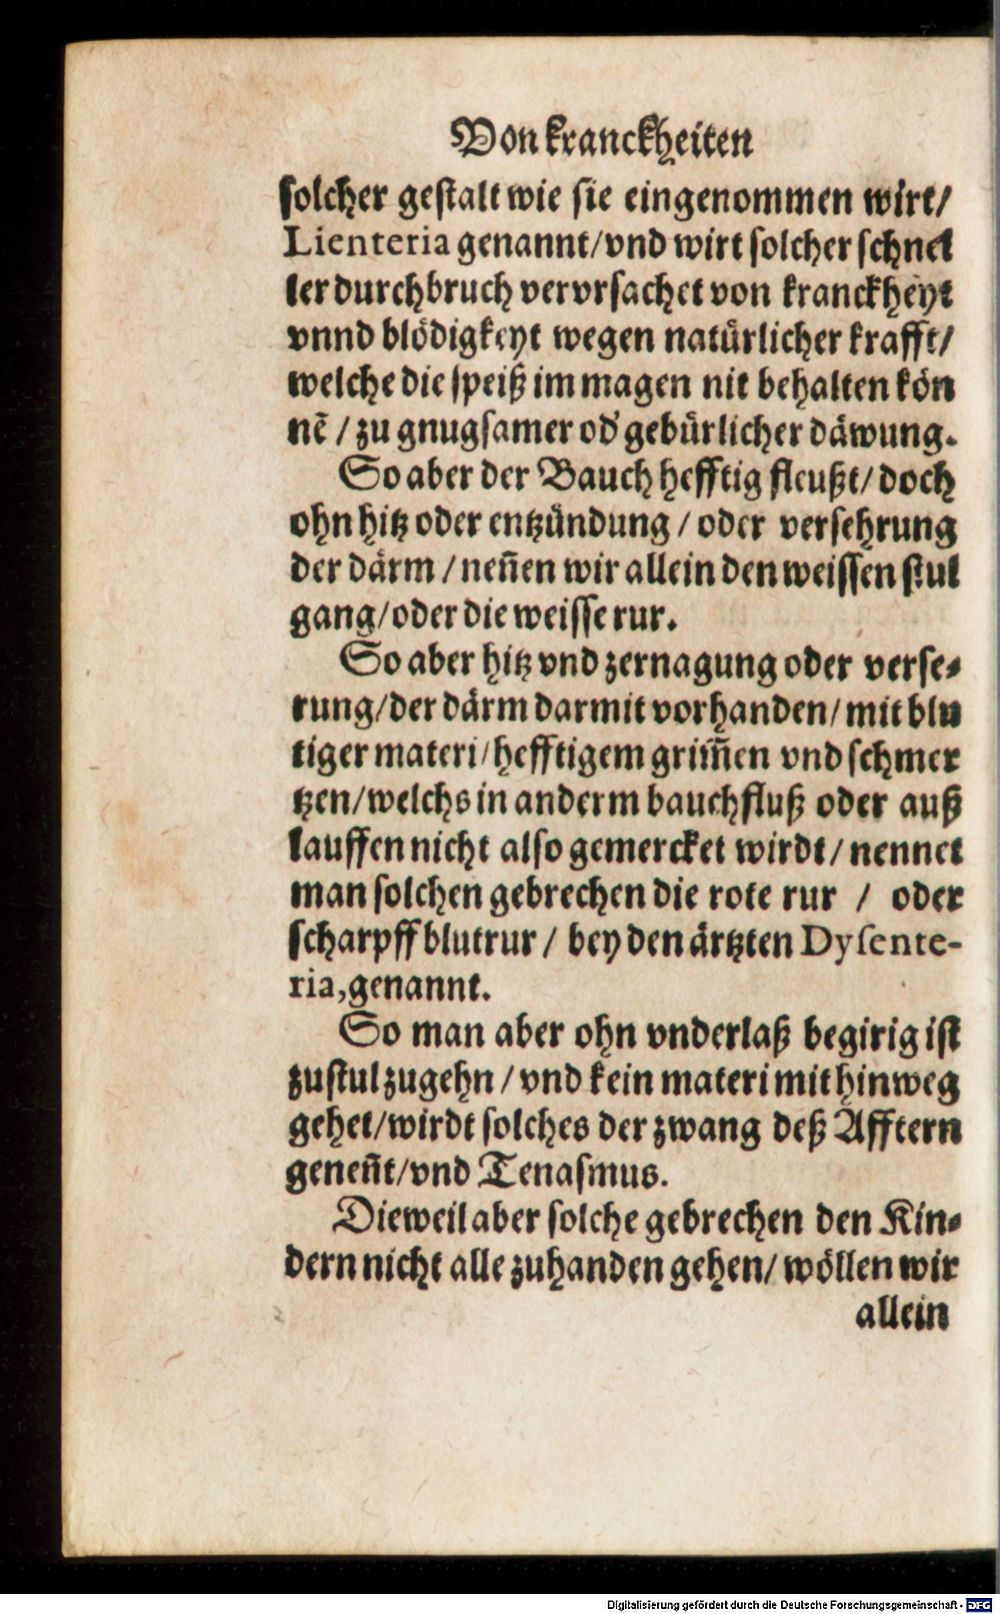 Von kranckheiten
solcher gestalt wie sie eingenommen wirt/
Lienteria genannt/vnd wirt solcher schnel
ler durchbruch vervrsachet von kranckheyt
vnnd blödigkeyt wegen natürlicher krafft/
welche die speiß im magen nit behalten kön
nē / zu gnugsamer od' gebürlicher däwung.
So aber der Bauch hefftig fleußt/ doch
ohn hitz oder entzündung / oder versehrung
der därm / neñen wir allein den weissen stul
gang/oder die weisse rur.
So aber hitz vnd zernagung oder verse⸗
rung/der därm darmit vorhanden/ mit blu
tiger materi/hefftigem grim̃en vnd schmer
tzen/welchs in anderm bauchfluß oder auß
lauffen nicht also gemercket wirdt/ nennet
man solchen gebrechen die rote rur / oder
scharpff blutrur / bey den ärtzten Dysente-
ria,genannt.
So man aber ohn vnderlaß begirig ist
zu stul zugehn / vnd kein materi mit hinweg
gehet/wirdt solches der zwang deß Afftern
geneñt/vnd Tenasmus.
Dieweil aber solche gebrechen den Kin⸗
dern nicht alle zuhanden gehen/ wöllen wir
allein
Digitalisierung gefördert durch die Deutsche Forschungsgemeinschaft - DFG